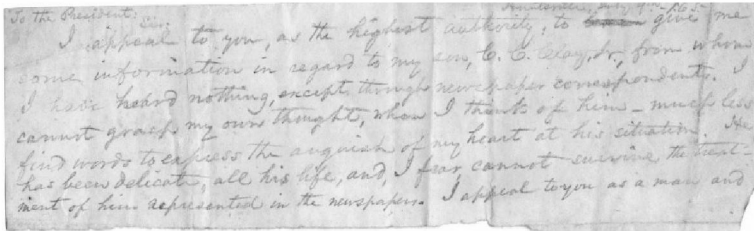 To the President:
Huntsville, July 4th 1865
Sir,
I appeal to you, as the highest authority, to give me
some information in regard to my son, C. C. Clay, Jr., from whom
I have heard nothing, except through newspaper correspondents. I
cannot grasp my own thought, when I think of him - much less
find words to express the anguish of my heart at his situation. He
has been delicate, all his life, and, I fear cannot survive the treat-
ment of him represented in the newspapers. I appeal to you as a man and